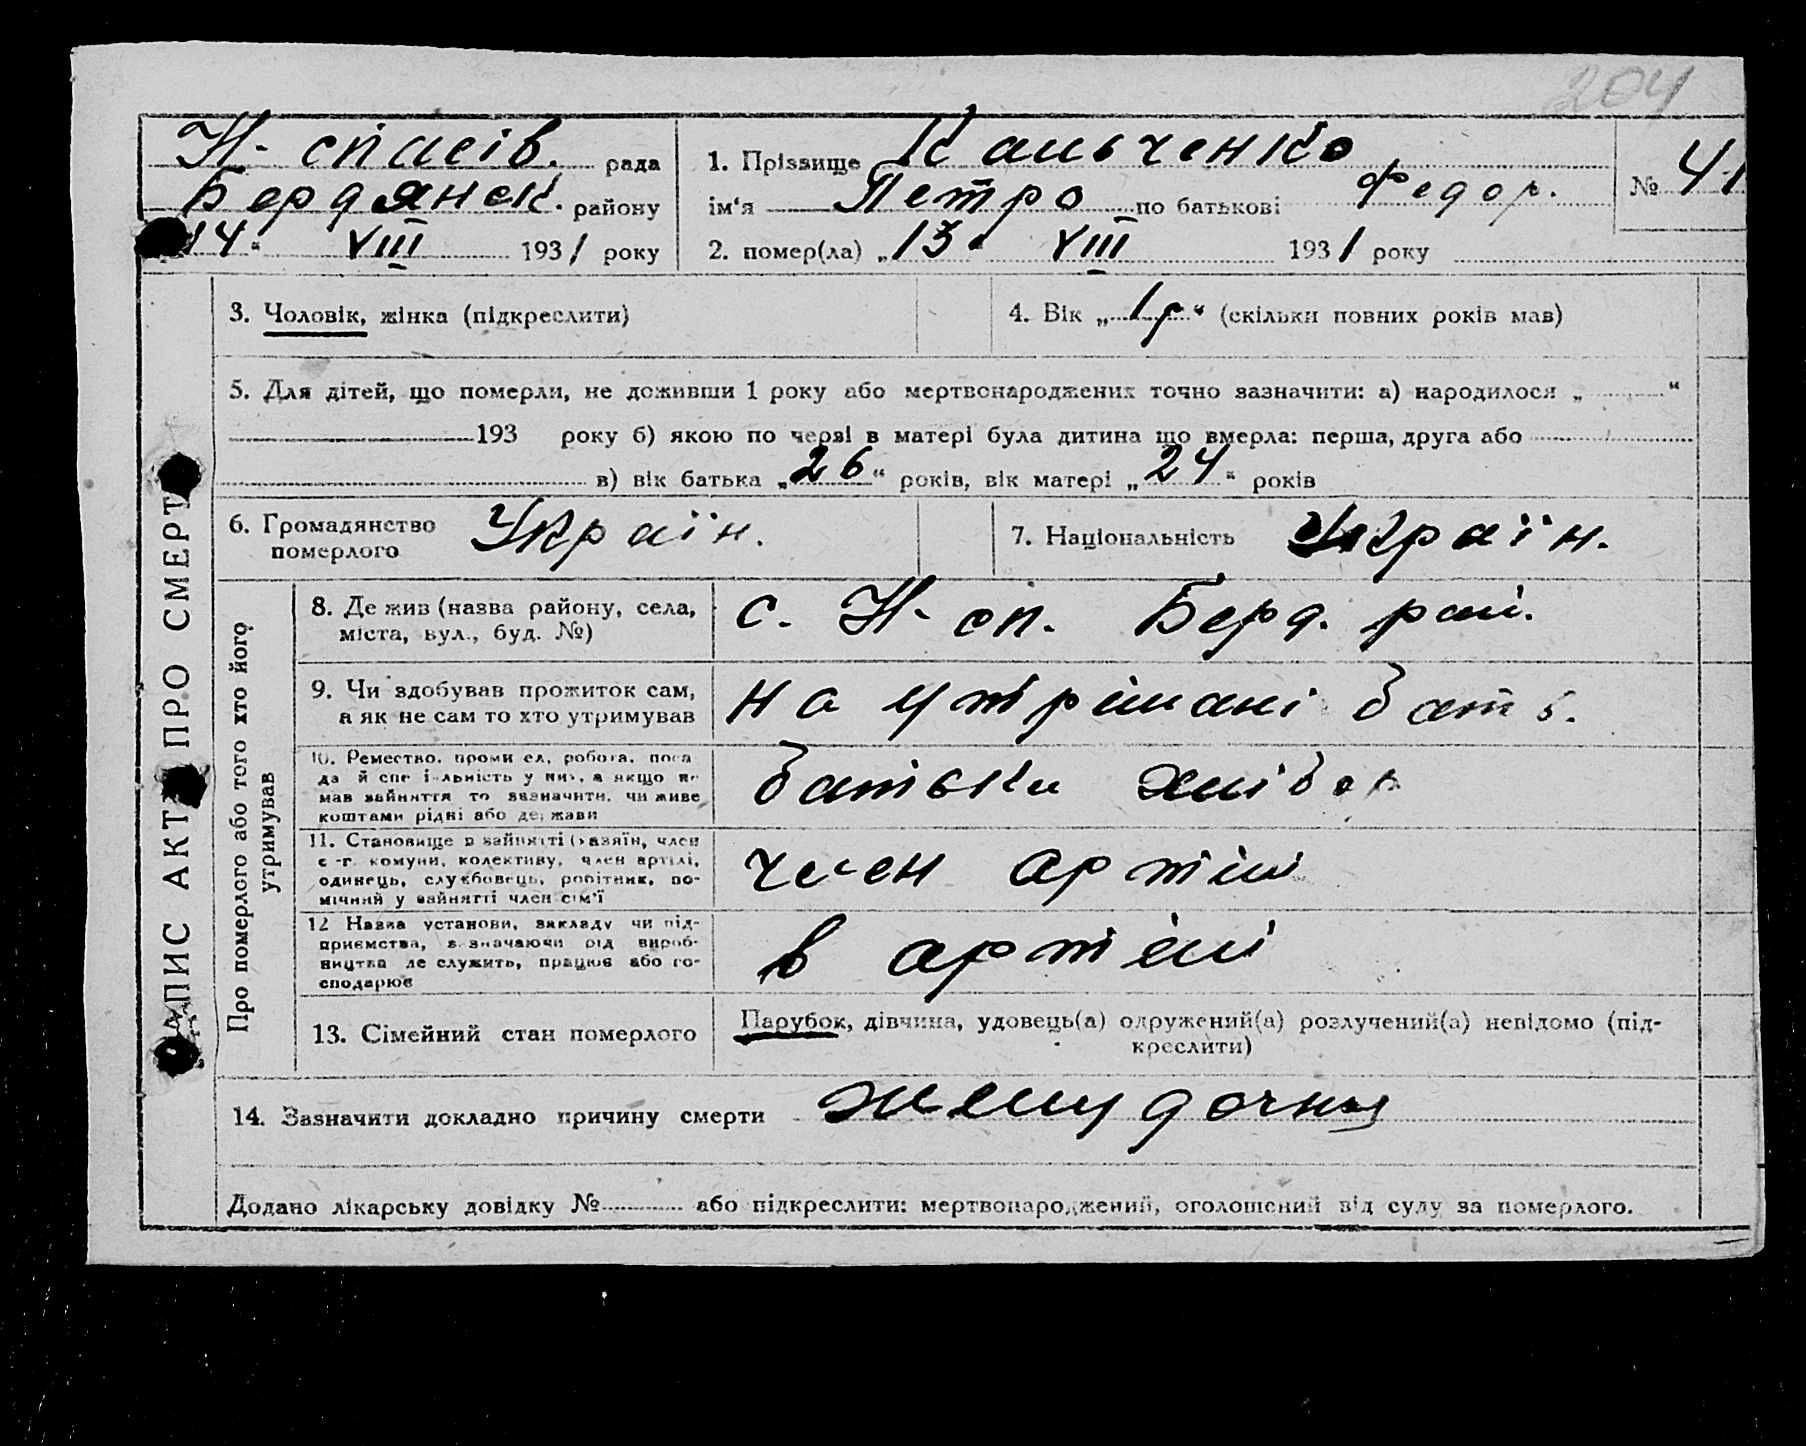 204
Н-спасів. рада
Бердянск. району
14" VIII 1931 року
1. Прізвище Кальченко
ім'я Петро по батькові Федор.
2. помер(ла) „13" VIII 1931 року
№ 41
3. Чоловік, жінка (підкреслити)
4. Вік „1 р" (скільки повних років мав)
5. Для дітей, що померли, не доживши 1 року або мертвонароджених точно зазначити: а) народилося „ "
193 року б) якою по черзі в матері була дитина що вмерла: перша, друга або
в) вік батька „26" років, вік матері „24" років
6. Громадянство
померлого Україн.
7. Національність Україн.
ЗАПИС АКТУ ПРО СМЕРТЬ
Про померлого або того хто його
утримував
8. Де жив (назва району, села,
міста, вул., буд. №)
с. Н-сп. Берд. рай.
9. Чи здобував прожиток сам,
а як не сам то хто утримував
на утрімані бать.
10. Ремество, промисел, робота, поса
да й спеціяльність у них, а якщо не
мав зайняття то зазначити, чи живе
коштами рідні або держави
батьки хлібор
11. Становище в зайнятті (хазяїн, член
с-г. комуни, колективу, член артілі,
одинець, службовець, робітник, по-
мічний у зайнятті член сім'ї
член артіли
12 Назва установи, закладу чи під-
приємства, зазначаючи рід вироб-
ництва де служить, працює або го-
сподарює
в артілі
13. Сімейний стан померлого
Парубок, дівчина, удовець(а) одружений(а) розлучений(а) невідомо (під-
креслити)
14. Зазначити докладно причину смерти желудочны
Додано лікарську довідку № або підкреслити: мертвонароджений, оголошений від суду за померлого.